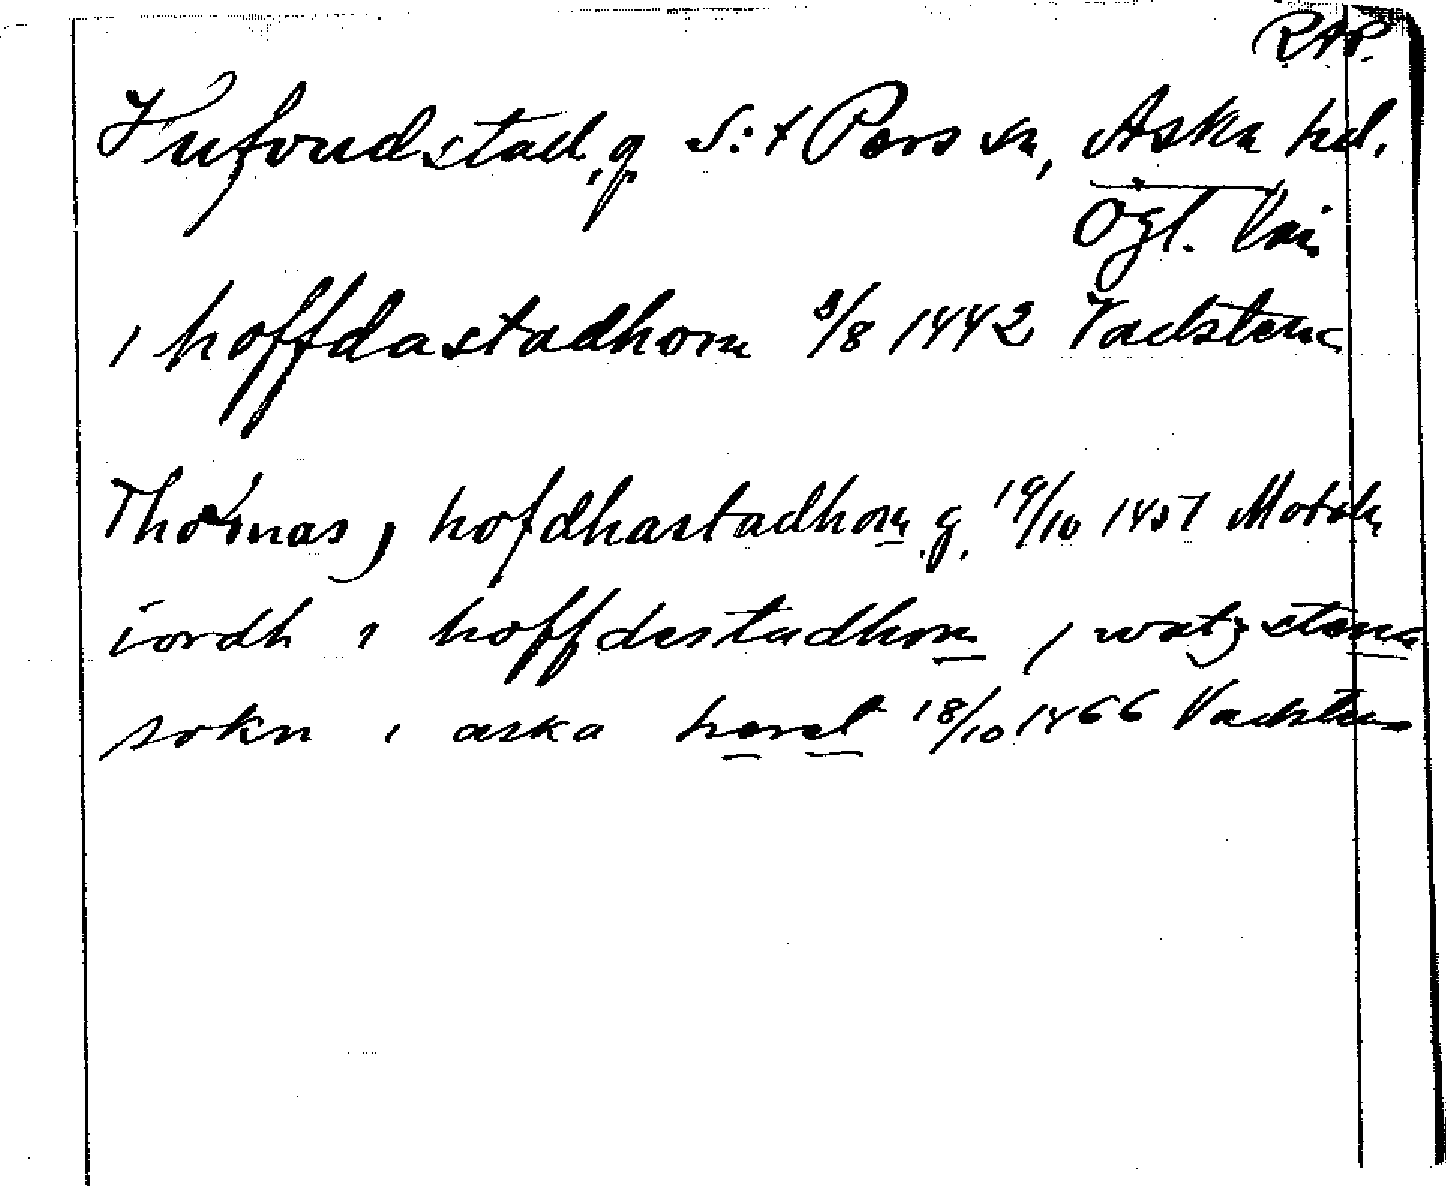 RAP.
Hufvudstad, g S:t Pers sn, Aska hd.
Ögl. län
i hoffdastadhom 3/8 1442 Vadstena
Thomas j hofdhastadhom g. 19/10 1457 Motala
iordh i hoffdestadhom j watzstena
sokn i aska heret 18/10 1466 Vadstena